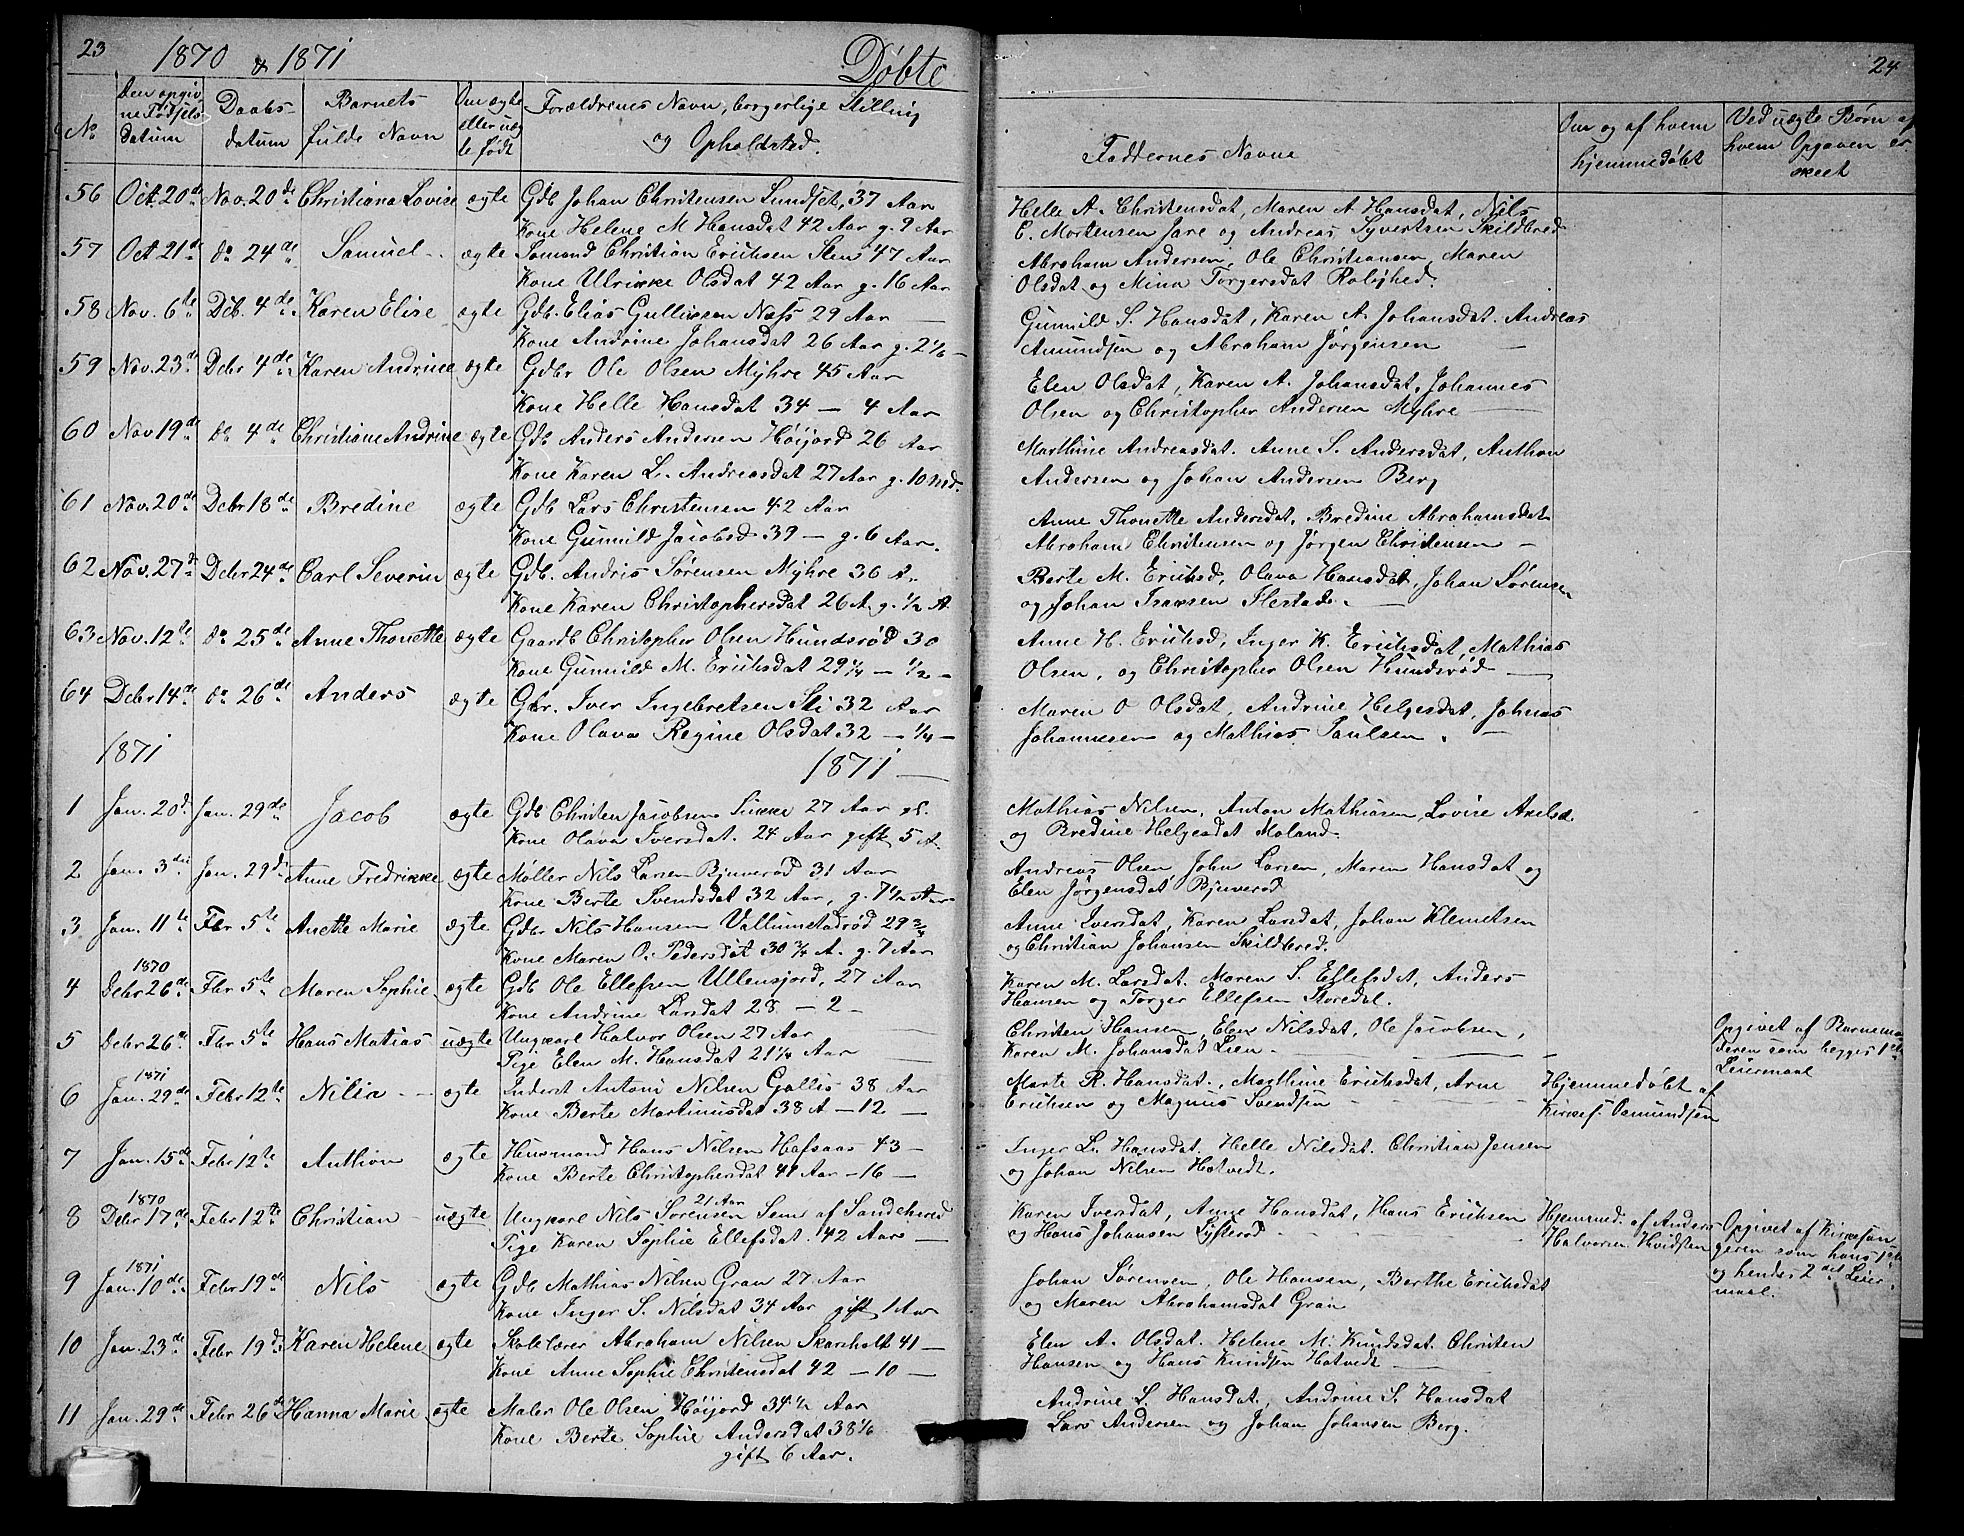 23
1870 & 1871
Døbte
24
No
Den opgivne Fødsels datum
Daabs-datum
Barnets fulde Navn
Om ægte eller uægte født
Forældrenes Navn, borgerlige Stilling og Opholdsted.
Faddernes Navne
Om og af hvem hjemmedøbt
Ved uægte Børn af hvem Opgaven er skeet
56 Oct. 20de Nov. 20de Christiana Lovise ægte Gdb Johan Christensen Sundset, 37 Aar
Kone Helene M Hansdat 42 Aar g. 9 Aar
Helle A. Christensdat, Maren A Hansdat, Nils
C. Mortensen Jare og Andreas Syvertsen Skildbred
57 Oct 21de do 24de Samuel ægte Sømand Christian Erichsen Sten 47 Aar
Kone Ulrikke Olsdat 42 Aar g. 16 Aar
Abraham Andersen, Ole Christiansen, Maren
Olsdat og Mina Torgersdat Roløked.
58 Nov. 6te Deb. 4de Karen Elise ægte Gdb. Elias Gullicsen Næss 29 Aar
Kone Andrine Johansdat 26 Aar g. 2 1/6
Gunnild S. Hansdat, Karen A. Johansdat. Andreas
Amundsen og Abraham Jørgensen
59 Nov. 23de Debr 4de Karen Andrine ægte Gdbr Ole Olsen Myhre 45 Aar
Kone Helle Hansdat 34 — 4 Aar
Elen Olsdat, Karen A. Johansdat, Johannes
Olsen og Christopher Andersen Myhre
60 Nov 19de do 4de Christiane Andrine ægte Gdb Anders Andersen Høijord 26 Aar
Kone Karen L. Andreasdat 27 Aar g. 10 Md.
Marthine Andreasdat. Anne S. Andersdat, Anthon
Andersen og Johan Andersen Berg
61 Nov. 20de Debr 18de Bredine ægte Gdb Lars Christensen 42 Aar
Kone Gunnild Jacobsd 39 — g. 6 Aar.
Anne Thonette Andersdat, Bredine Abrahamsdat
Abraham Christensen og Jørgen Christensen —
62 Nov. 27d Debr 24de Carl Severin ægte Gdb. Andris Sørensen Myhre 36 A.
Kone Karen Christophersdat 26 A. g. 1/2 A.
Berte M. Erichsd, Olava Hansdat, Johan Sørensen
og Johan Isaksen Slestad.
63 Nov. 12te do 25de Anne Thonette ægte Gaardb Christopher Olsen Hundsrød 30
Kone Gunnild M. Erichsdat 29 1/4 — 1/2 —
Anne H. Erichsd, Inger K. Erichsdat, Mathias
Olsen, og Christopher Olsen Hundsrød
64 Debr 14de do 26de Anders ægte Gbr. Iver Ingebretsen Sti 32 Aar
Kone Olava Regine Olsdat 32 — 1/4 —
Maren O Olsdat, Andrine Helgesdat, Johnas
Johannesen og Mathias Paulsen.
1871
1871
1 Jan. 20d Jan. 29de Jacob ægte Gdb Christen Jacobsen Sukke 27 Aar
Kone Olava Iversdat. 24 Aar gift 5 A.
Mathias Nilsen, Anton Mathiasen, Lovise Axelsd.
og Bredine Helgesdat Moland.
2 Jan. 3die Jan. 29d Anne Fredrikke ægte Møller Nils Larsen Bjuverød 31 Aar
Kone Berte Svendsdat 32 Aar, g. 7 1/2 Aar
Andreas Olsen John Larsen, Maren Hansdat og
Elen Jørgensdat Bjuverød
3 Jan. 11te Febr 5te Anette Marie ægte Gdbr Nils Hansen Vallumstadrød 29 3/4
Kone Maren O. Pedersdat 30 3/4 A. g. 7 Aar
Anne Iversdat, Karen Larsdat, Johan Klemetsen
og Christian Johansen Skildbred.
4 1870 Debr 26de Fbr 5te Maren Sophie ægte Gdb Ole Ellefsen Ullensjord, 27 Aar
Kone Andrine Larsdat 28 — 2 —
Karen M. Larsdat. Maren S. Ellefsdat, Anders
Hansen og Torger Ellefsen Storedal.
5 Debr 26de Fbr 5te Hans Matias uægte Ungkarl Halvor Olsen 27 Aar
Pige Elen M. Hansdat 21 1/4 Aar
Christen Hansen, Elen Nilsdat, Ole Jacobsen,
Karen M. Johansdat Lien
Opgivet af Barnemoderen som begges 1ste Leiermaal
6 1871 Jan. 29de Febr 12te Nilia ægte Inderst Antoni Nilsen Gallis 38 Aar
Kone Berte Martinusdat 38 A — 12 —
Marte R. Hansdat., Marthine Erichsdat, Arne
Erichsen og Magnus Svendsen
Hjemmedøbt af Kirkes. Osmundsen
7 Jan. 15de Febr 12te Anthon ægte Huusmand Hans Nilsen Hafsaas 43 —
Kone Berte Christophersdat 41 Aar — 16 —
Inger L. Hansdat. Helle Nilsdat. Christian Jensen
og Johan Nilsen Hotvedt.
8 1870 Debr 17de Febr 12te Christian uægte Ungkarl Nils Sørensen 21 Aar Sem af Sandeherred
Pige Karen Sophie Ellefsdat. 42 Aar
Karen Iversdat, Anne Hansdat, Hans Erichsen
og Hans Johansen Lysterød
Hjemmed. af Anders Halvorsen Hvidsten
Opgivet af Kirkesangeren som hans 1ste og hendes 2det Leiermaal.
9 1871 Jan. 10de Febr 19de Nils ægte Gdb Mathias Nilsen Gran 27 Aar
Kone Inger S. Nilsdat 34 Aar gift 1 Aar
Johan Sørensen, Ole Hansen, Berthe Erichsdat
og Maren Abrahamsdat Gran
10 Jan. 23de Febr 19de Karen Helene ægte Skolelærer Abraham Nilsen Skarsholt 41 —
Kone Anne Sophie Christensdat 42 — 10 —
Elen A. Olsdat. Helene M. Knudsdat. Christen
Hansen og Hans Knudsen Hotvedt
11 Jan. 29de Febr 26de Hanna Marie ægte Maler Ole Olsen Høijord 34 1/2 Aar
Kone Berte Sophie Andersdat 38 1/6
gift 6 Aar.
Andrine L. Hansdat, Andrine S. Hansdat
Lars Andersen og Johan Johansen Berg.